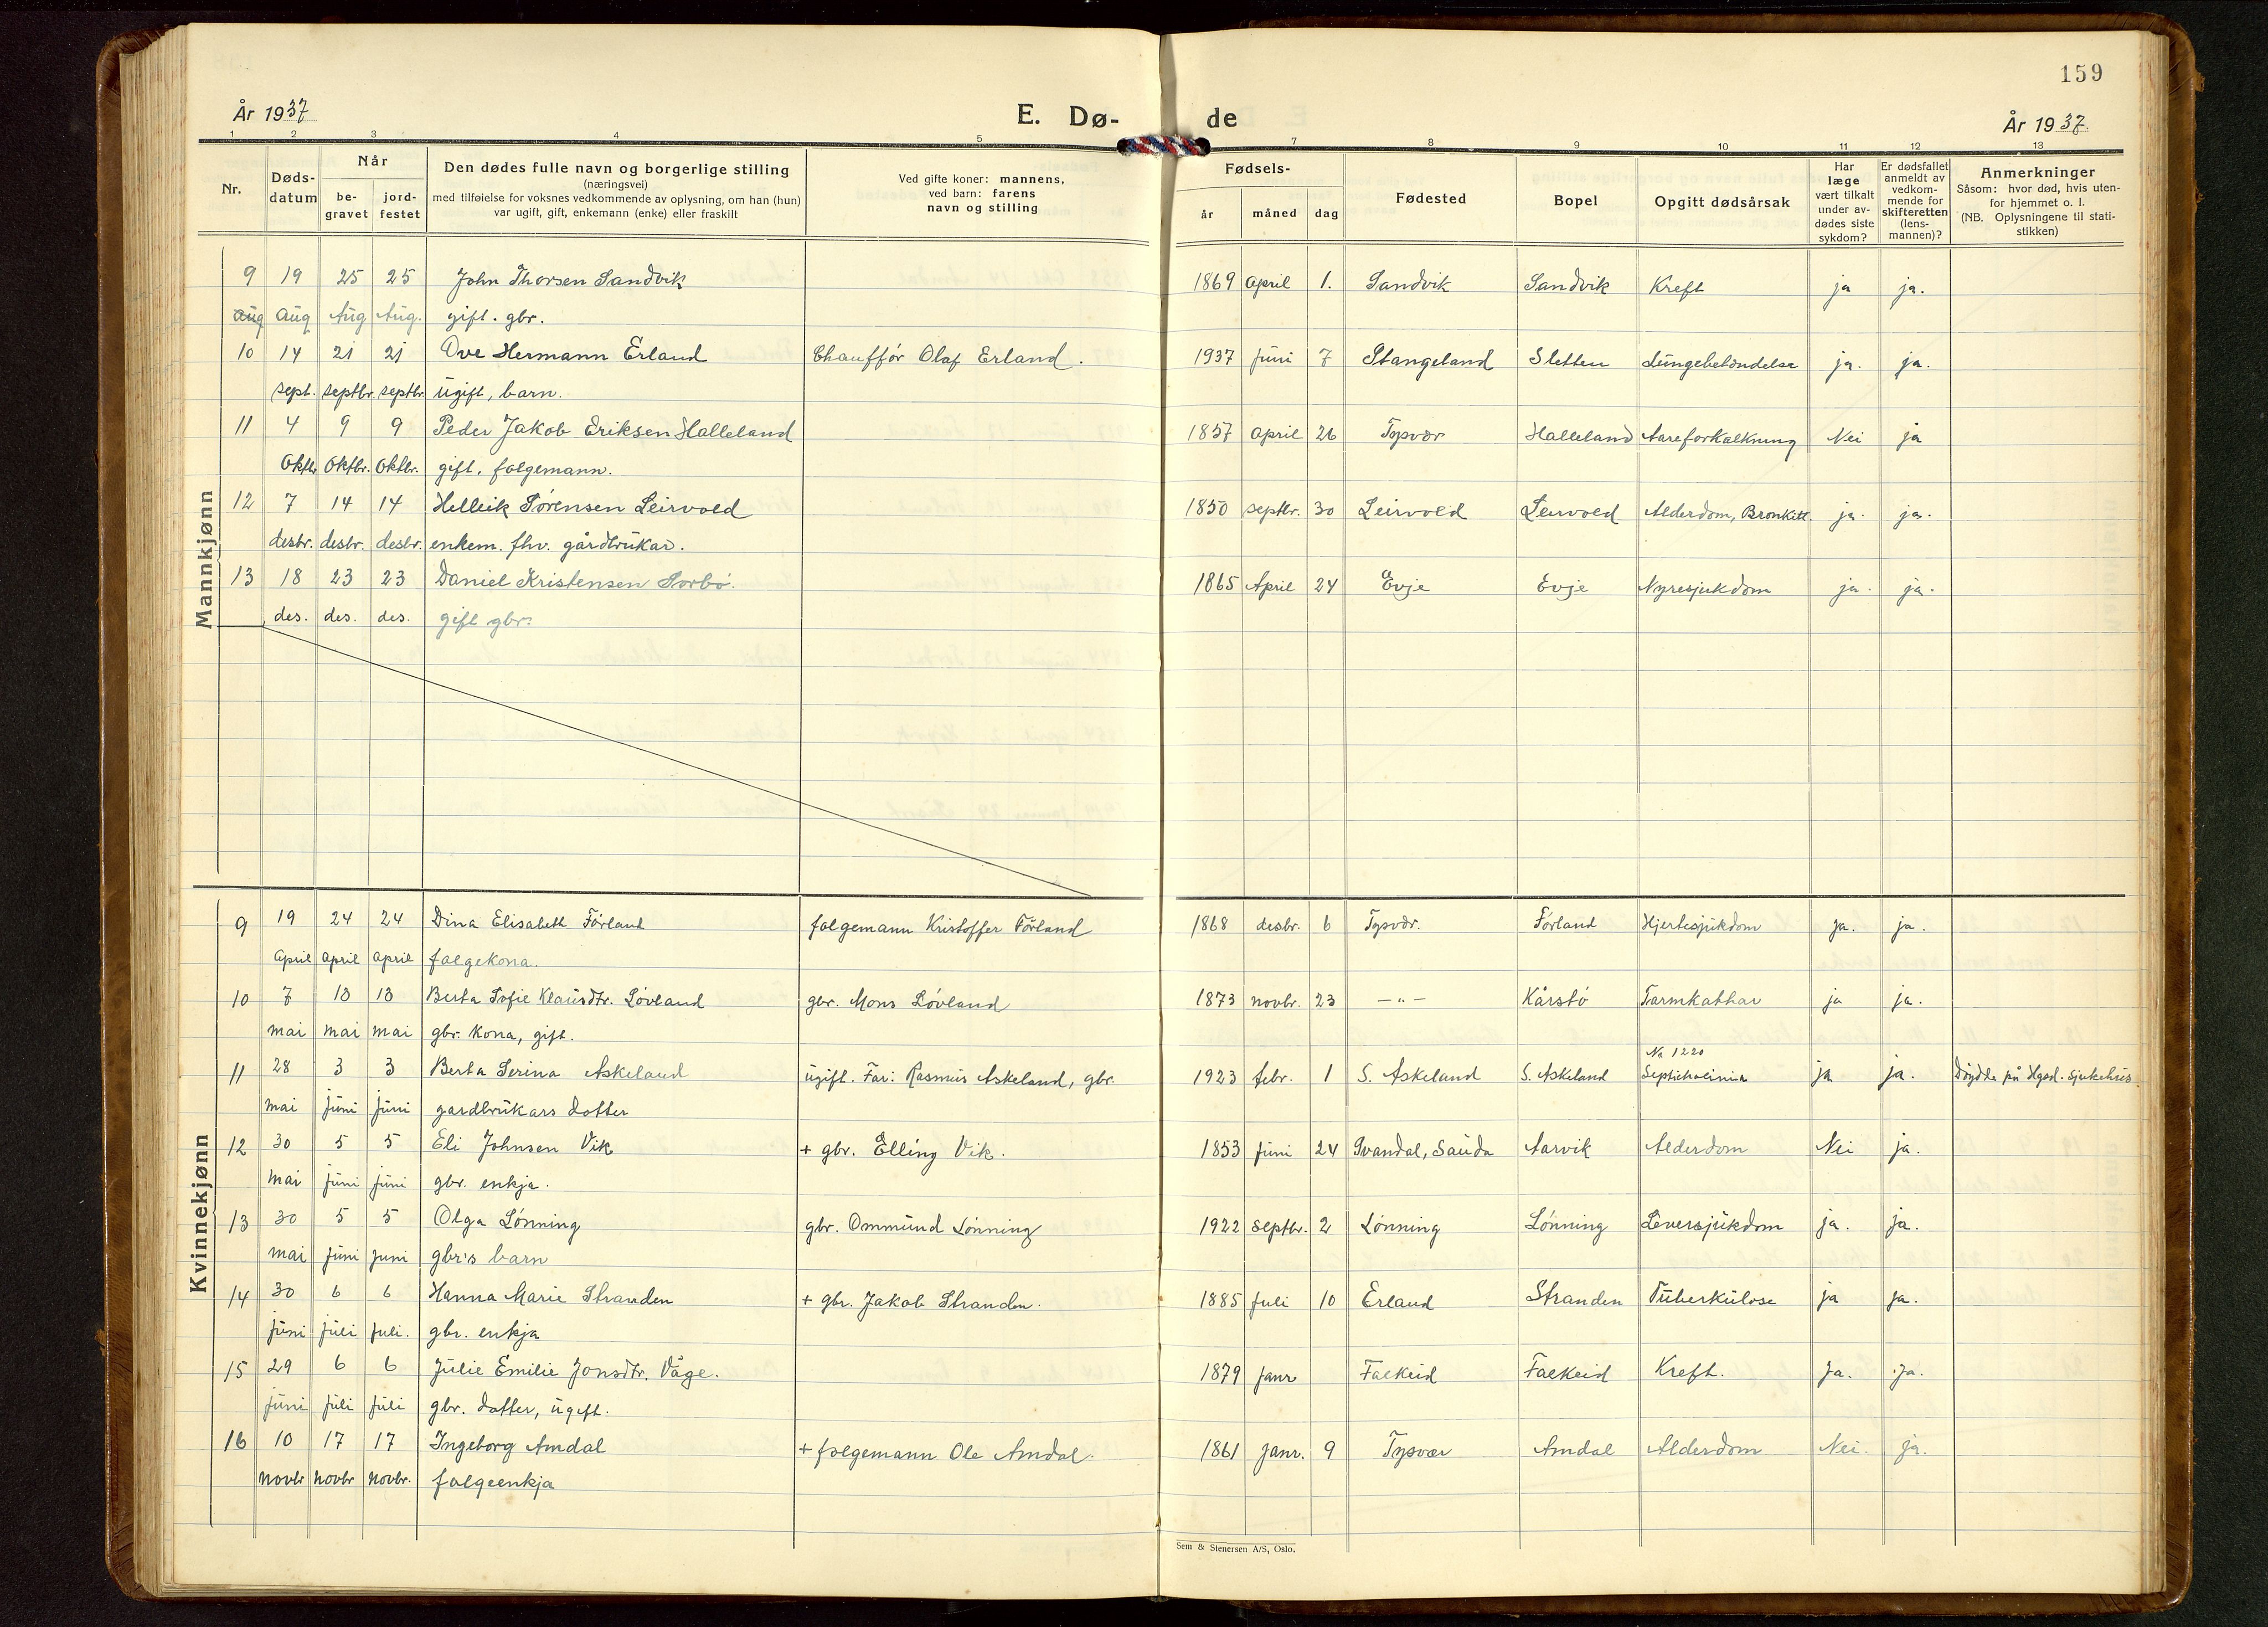 159
År 1937 E. Dø- de År 1937.
1 2 3 4 5 7 8 9 10 11 12 13
Nr.
Døds-
datum
Når
be-
gravet
jord-
festet
Den dødes fulle navn og borgerlige stilling
(næringsvei)
med tilføielse for voksnes vedkommende av oplysning, om han (hun)
var ugift, gift, enkemann (enke) eller fraskilt
Ved gifte koner: mannens,
ved barn: farens
navn og stilling
Fødsels-
år måned dag
Fødested
Bopel
Opgitt dødsårsak
Har
læge
vært tilkalt
under av-
dødes siste
sykdom?
Er dødsfallet
anmeldt av
vedkom-
mende for
skifteretten
(lens-
mannen)?
Anmerkninger
Såsom: hvor død, hvis uten-
for hjemmet o. l.
(NB. Oplysningene til stati-
stikken)
Mannkjønn
9 19 25 25 John Thorsen Sandvik 1869 april 1. Sandvik Sandvik Kreft ja ja.
aug aug Aug Aug. gift. gbr.
10 14 21 21 Ove Hermann Erland Chaufför Olaf Erland. 1937 juni 7 Stangeland Sletten Lungebetændelse ja. ja.
sept. septbr. septbr. ugift, barn.
11 4 9 9 Peder Jakob Eriksen Halleland 1857 april 26 Tysvær Halleland Aareforkalkning Nei ja
Oktbr Oktbr. Oktbr. gift, folgemann.
12 7 14 14 Helleik Sørensen Leirvold 1850 septbr. 30 Leirvold Leirvold Alderdom, Bronkitt. ja. ja.
desbr. desbr. desbr. enkem. fhv. gårdbrukar.
13 18 23 23 Daniel Kristensen Sørbø. 1865 April 24 Evje Evje Nyresjukdom ja. ja.
des. des. des. gift gbr.
Kvinnekjønn
9 19 24 24 Dina Elisabeth Førland folgemann Kristoffer Førland 1868 desbr. 6 Tysvær. Førland Hjertesjukdom ja. ja.
April April April folgekona.
10 7 13 13 Berta Sofie Klausdtr. Løvland gbr. Mons Løvland 1873 novbr. 23 — " — Kårstø Tarmkathar ja ja.
mai mai mai gbr. kona, gift.
No 1220
11 28 3 3 Berta Serina Askeland ugift. Far: Rasmus Askeland, gbr. 1923 febr. 1 S. Askeland S. Askeland ja ja. Døydde på Hgsd. sjukehus.
mai juni juni gardbrukars dotter
12 30 5 5 Eli Johnsen Vik + gbr. Elling Vik. 1853 juni 24 Svandal, Sauda Aarvik Alderdom Nei ja.
mai juni juni gbr. enkja.
13 30 5 5 Olga Lønning gbr. Ommund Lønning 1922 septbr. 2 Lønning Lønning Leversjukdom ja. ja.
mai juni juni gbr's barn
14 30 6 6 Hanna Marie Stranden + gbr. Jakob Stranden. 1885 juli 10 Erland Stranden Tuberkulose ja ja.
juni juli juli. gbr. enkja
15 29 6 6 Julie Emilie Jonsdtr. Våge. 1879 janr Falkeid Falkeid Kreft. Ja. ja.
juni juli juli gbr. dotter, ugift.
16 10 17 17 Ingeborg Amdal + folgemann Ole Amdal. 1861 janr. 9 Tysvær Amdal Alderdom Nei. ja.
novbr novbr novbr. folgeenkja
Sem & Stenersen A/S, Oslo.